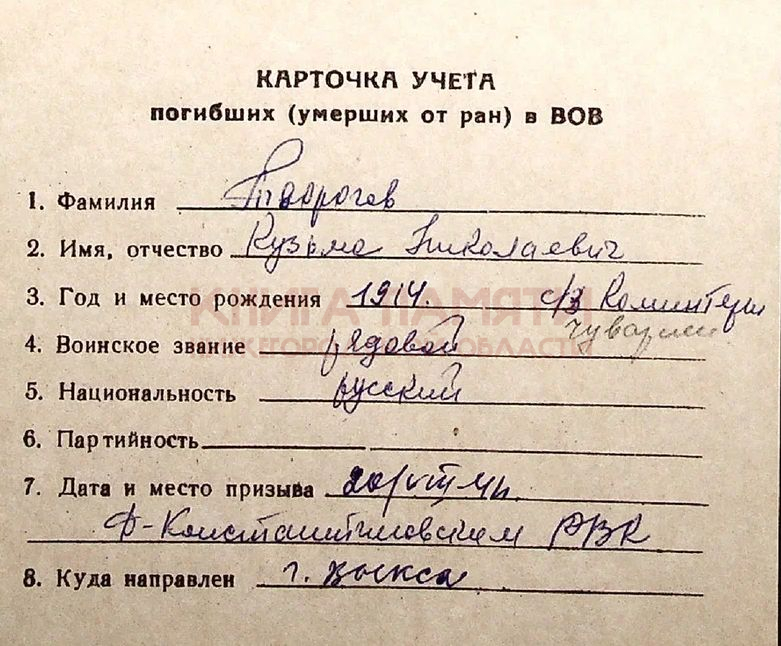 КАРТОЧКА УЧЕТА
погибших (умерших от ран) в ВОВ
1. Фамилия
2. Имя, отчество Кузьма Николаевич
3. Год и место рождения 1914. с/з Коминтерн
КНИГА ПАМЯТИ
4. Воинское звание рядовой
5. Национальность русский
6. Партийность
7. Дата и место призыва
Д-Константиновским РВК
8. Куда направлен г. Выкса